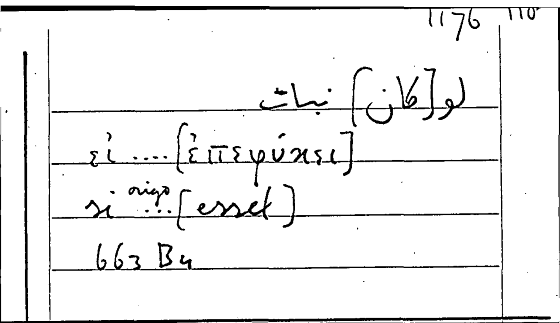 1176 110
لو [كان] نبات
εἰ .... [ἐπεφύκει]
si origo ... [esset]
663 Bu